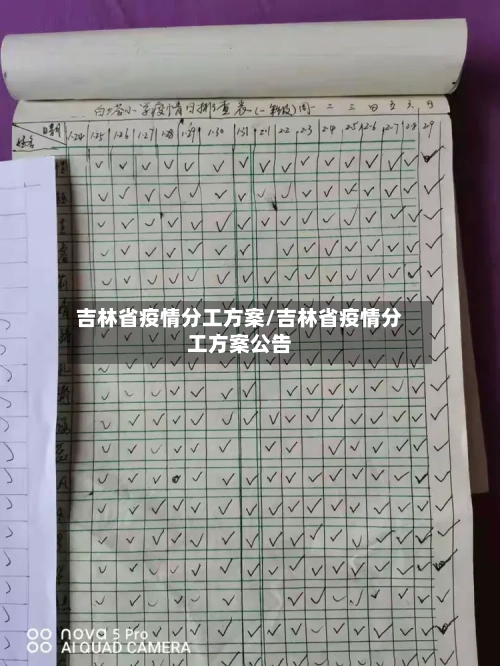 白塔小学疫情日排查表(一年级)周一 二 三 四 五 六 日
日期
姓名
1.24 1.25 1.26 1.27 1.28 1.29 1.30 1.31 2.1 2.2 2.3 2.4 2.5 2.6 2.7 2.8 2.9
吉林省疫情分工方案/吉林省疫情分
工方案公告
nova 5 Pro
AI QUAD CAMERA